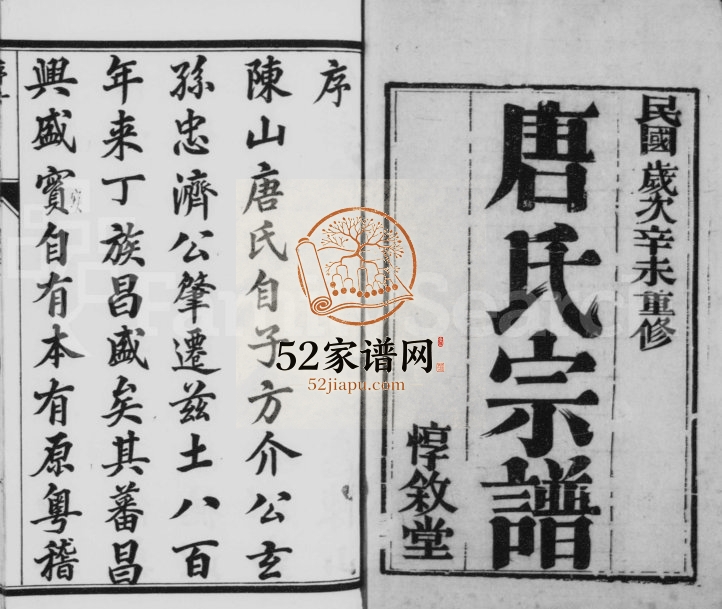 民國歲次辛未重修
唐氏宗譜
惇敘堂
序
陳山唐氏自子方介公玄
孫忠濟公肇遷茲土八百
年来丁族昌盛矣其蕃昌
興盛賓自有本有原粤稽
52家谱网
52jiapu.com